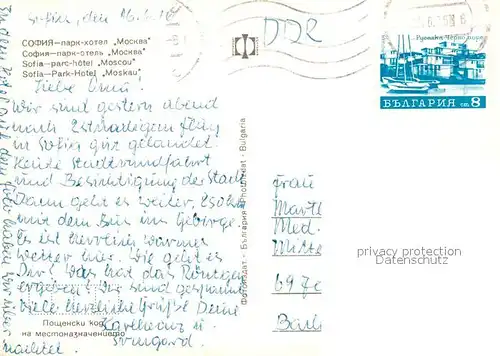 Sofia, den 16.6.78
DDR
СОФИЯ—парк-хотел „Москва"
София—парк-отель „Москва"
Sofia—parc-hôtel „Moscou"
Sofia—Park-Hotel „Moskau"
Liebe Omi.
Wir sind gestern abend
nach Flug
in Sofia gut gelandet.
Heute Stadtrundfahrt
und Besichtigung der Stadt
Dann geht es weiter, 250 km
mit dem Bus ins Gebirge.
Es ist herrlich warmes
Wetter hier. Wie geht es
Dir? Was hat das Röntgen
ergeben? Wir sind gespannt
viele herzliche Grüße Deine
Karlheinz u.
Irmgard.
Пощенски код
на местоназначението
In dem Hotel auf dem Foto haben wir über
nachtet.
Фотоиздат - България · Photoizdat - Bulgaria
Русалка Черно море
БЪЛГАРИЯ ст 8
Frau
Marth
Med.
Mitte
privacy protection
Datenschutz
69 Je
Bach